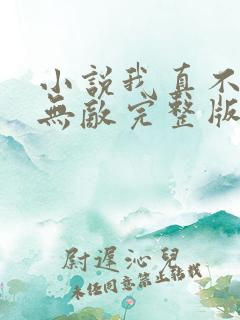 小說我真不
無敵完整版
尉遲沁兒
未經同意禁止轉載